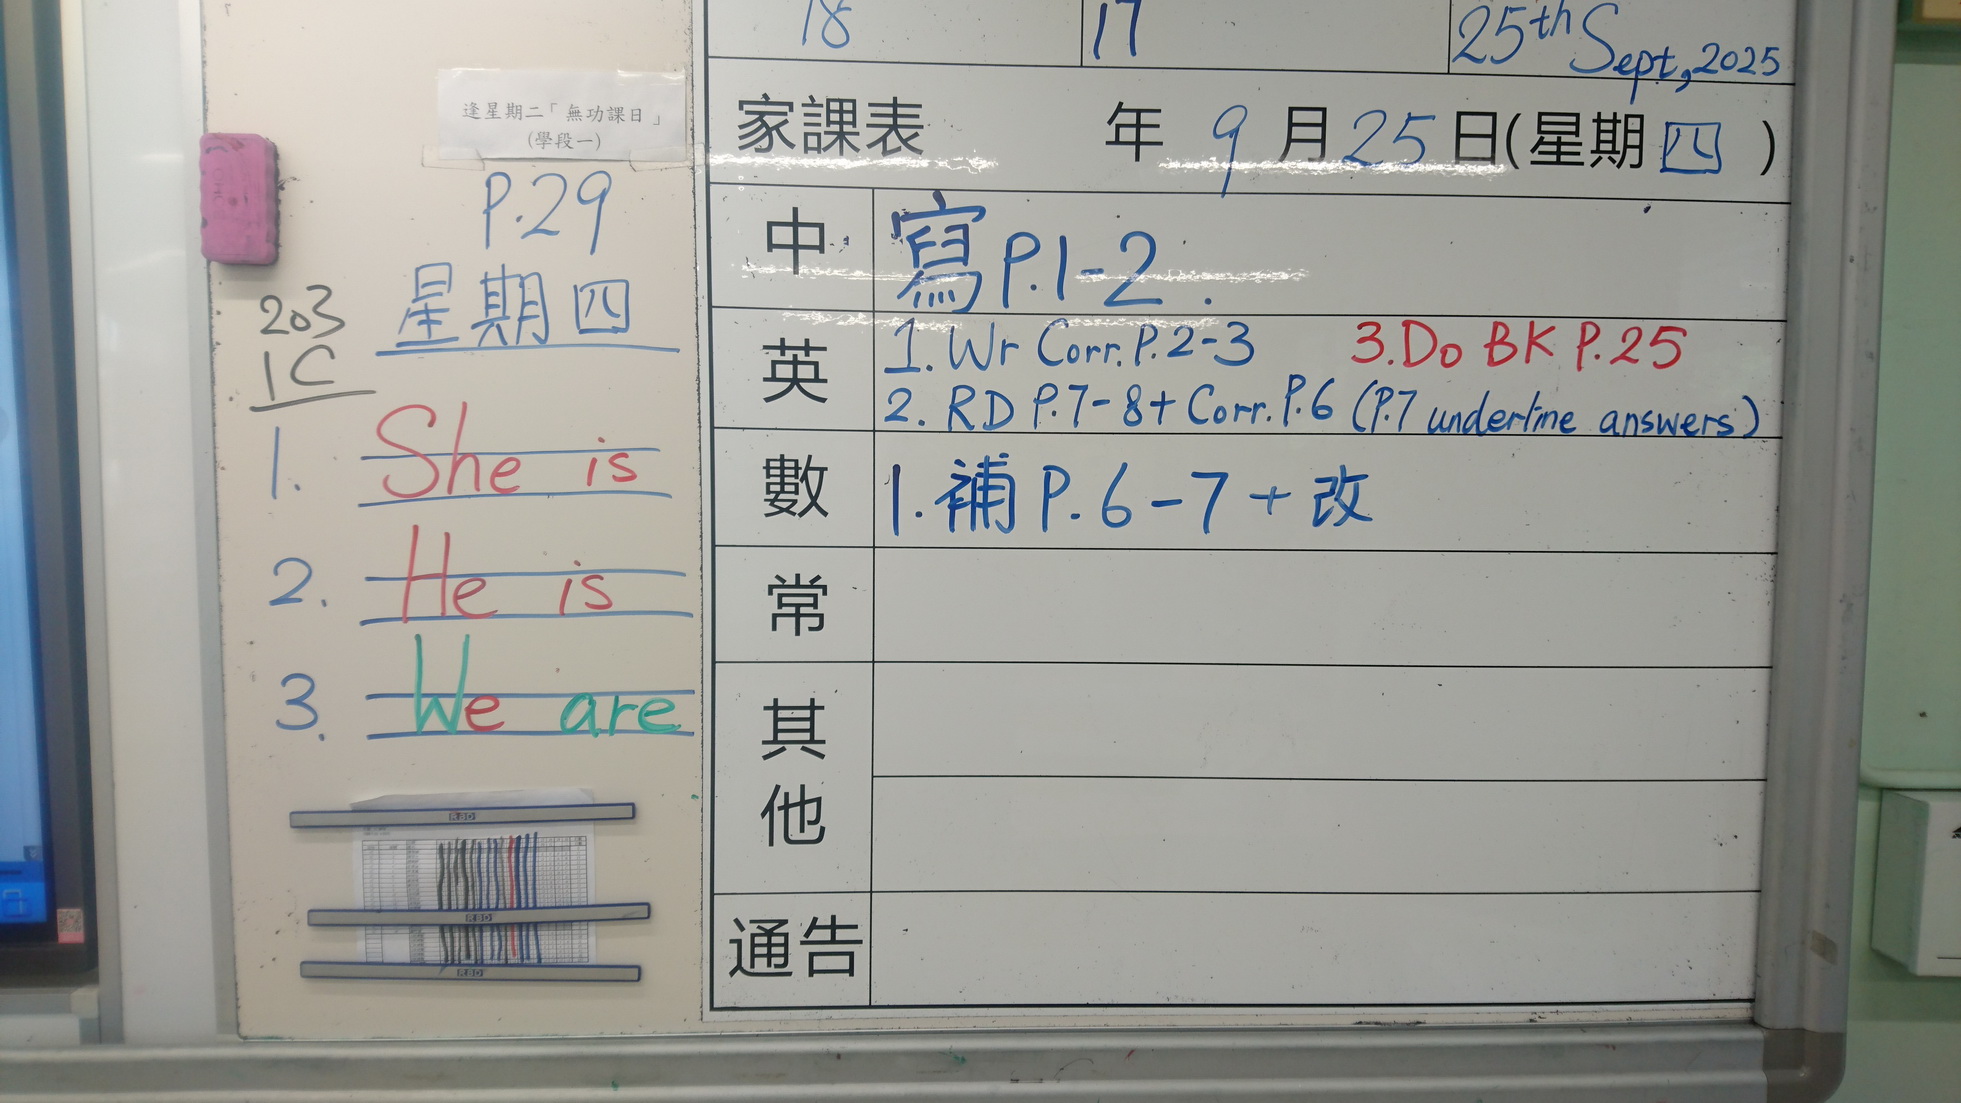 18 17 25th Sept, 2025
逢星期二「無功課日」
(學段一)
家課表 年 9 月 25 日(星期 四 )
P.29
星期四
203
1C
1. She is
2. He is
3. We are
中 寫 P.1-2.
英 1. Wr Corr. P.2-3 3. Do BK P.25
2. RD P.7-8 + Corr. P.6 (P.7 underline answers)
數 1. 補 P.6-7 + 改
常
其他
通告